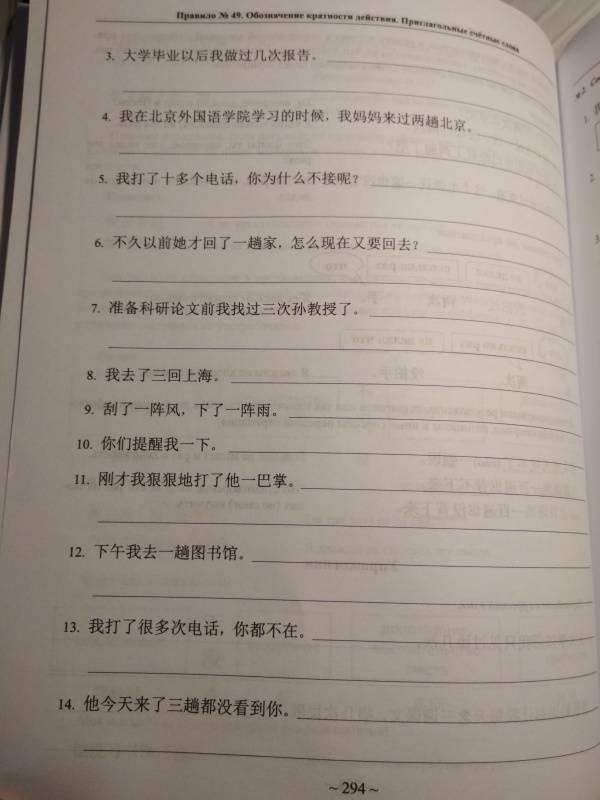 Правило № 49. Обозначение кратности действия. Приглагольные счётные слова
3. 大学毕业以后我做过几次报告。
4. 我在北京外国语学院学习的时候，我妈妈来过两趟北京。
5. 我打了十多个电话，你为什么不接呢？
6. 不久以前她才回了一趟家，怎么现在又要回去？
7. 准备科研论文前我找过三次孙教授了。
8. 我去了三回上海。
9. 刮了一阵风，下了一阵雨。
10. 你们提醒我一下。
11. 刚才我狠狠地打了他一巴掌。
12. 下午我去一趟图书馆。
13. 我打了很多次电话，你都不在。
14. 他今天来了三趟都没看到你。
~ 294 ~
№ 2. Со
1.
2.
3.